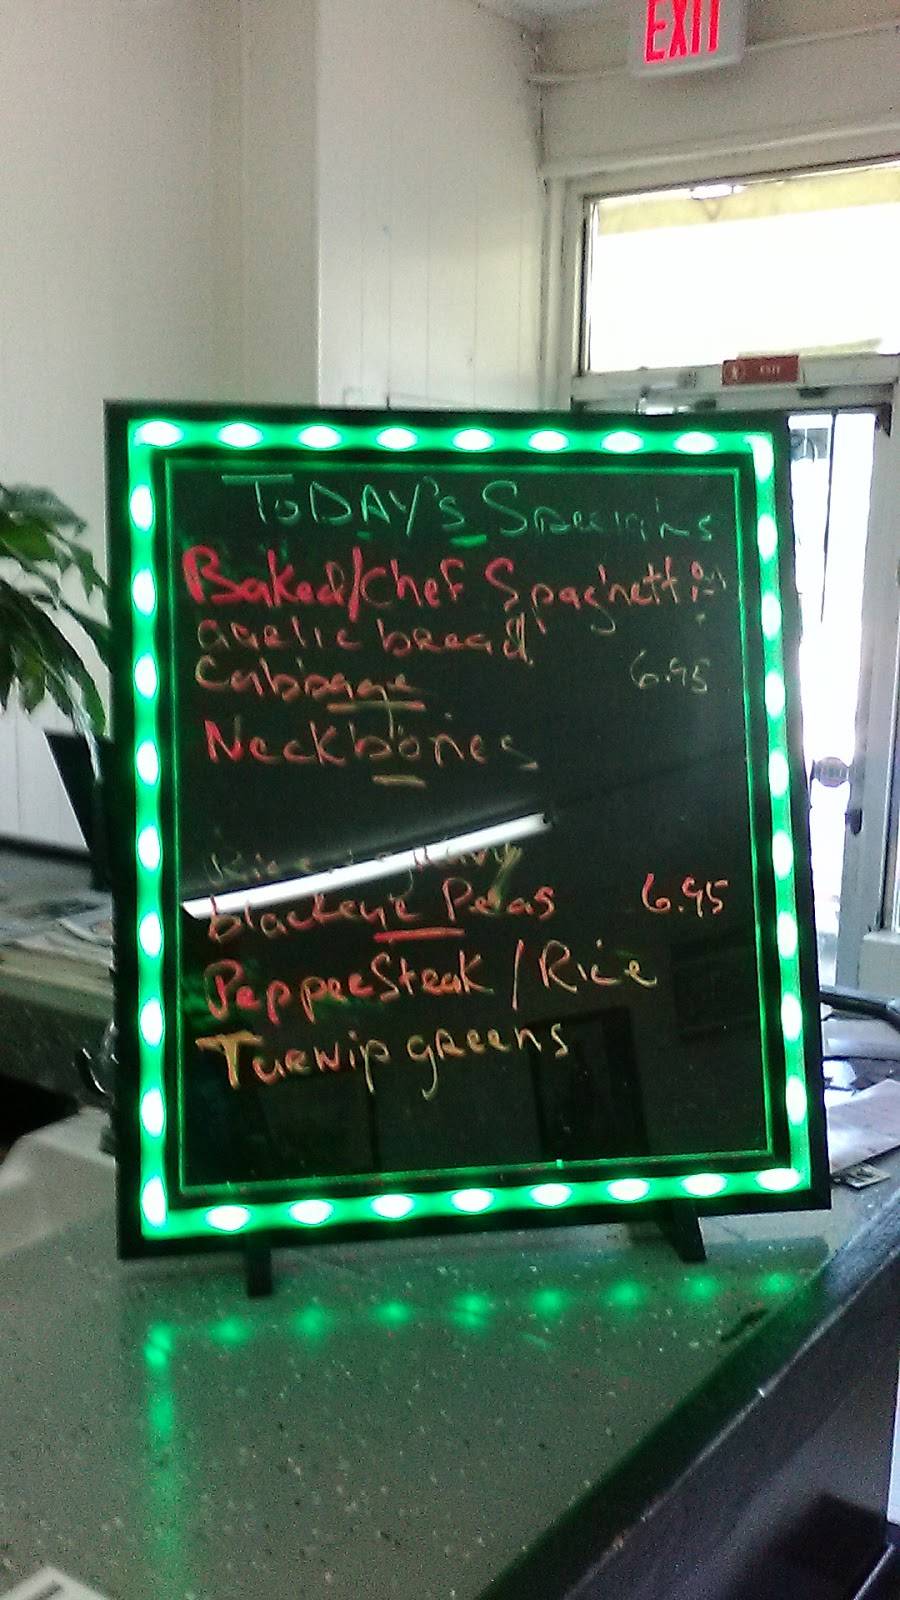 EXIT
EXIT
ToDAY's
Baked/Chef Spaghetti
garlic bread
Cabbage 6.95
Neckbones
Rice gravy
blackeye Peas 6.95
PepperSteak / Rice
Turnip greens